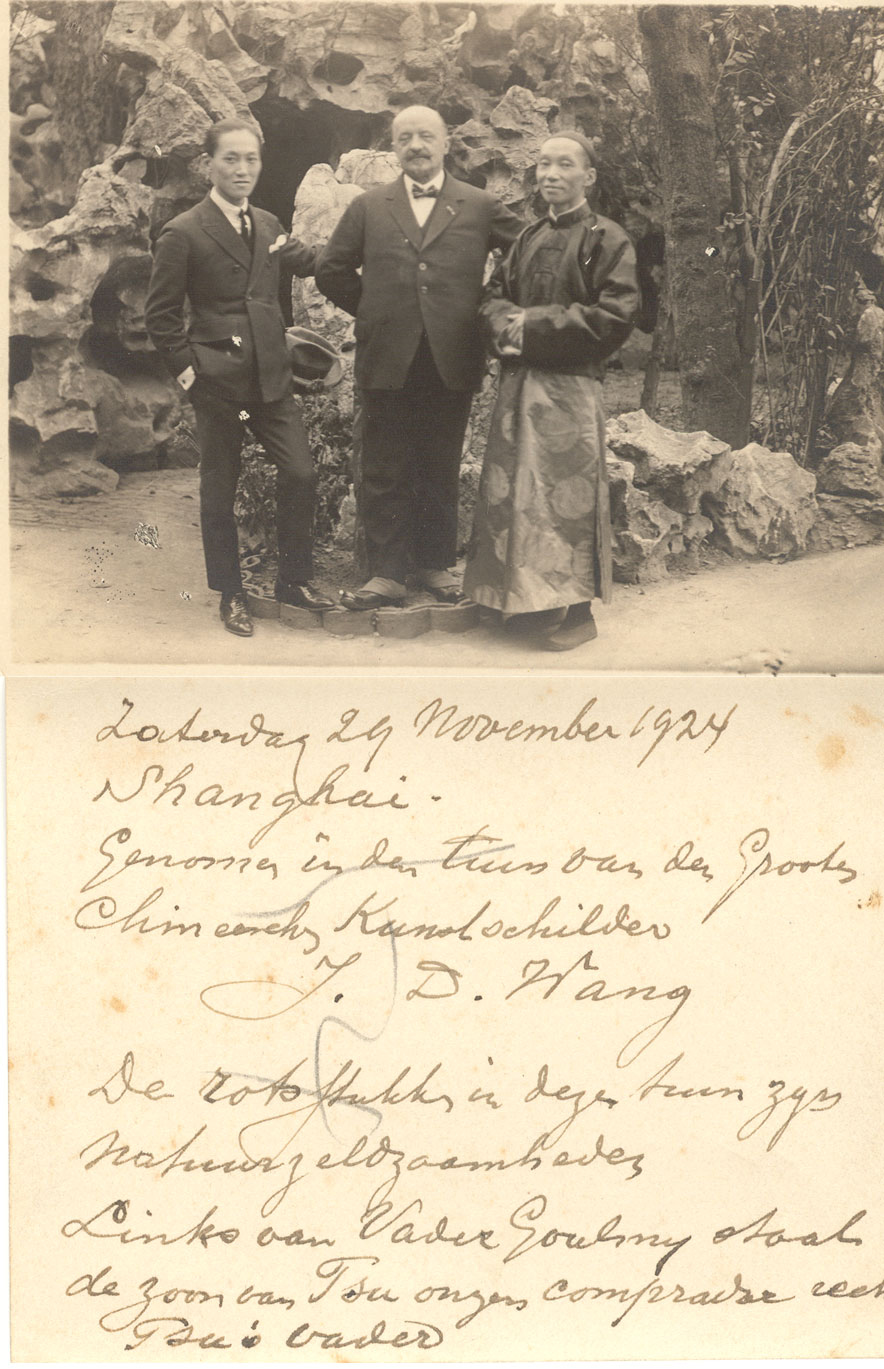 Zaterdag 29 November 1924
Shanghai.
Genomen in den tuin van den Grooten
Chineeschen Kunstschilder
J. D. Wang
De rotsstukken in dezen tuin zyn
Natuurzeldzaamheden
Links van Vader Goulmy staat
de zoon van Tsu onzen compradore
Tsu's vader